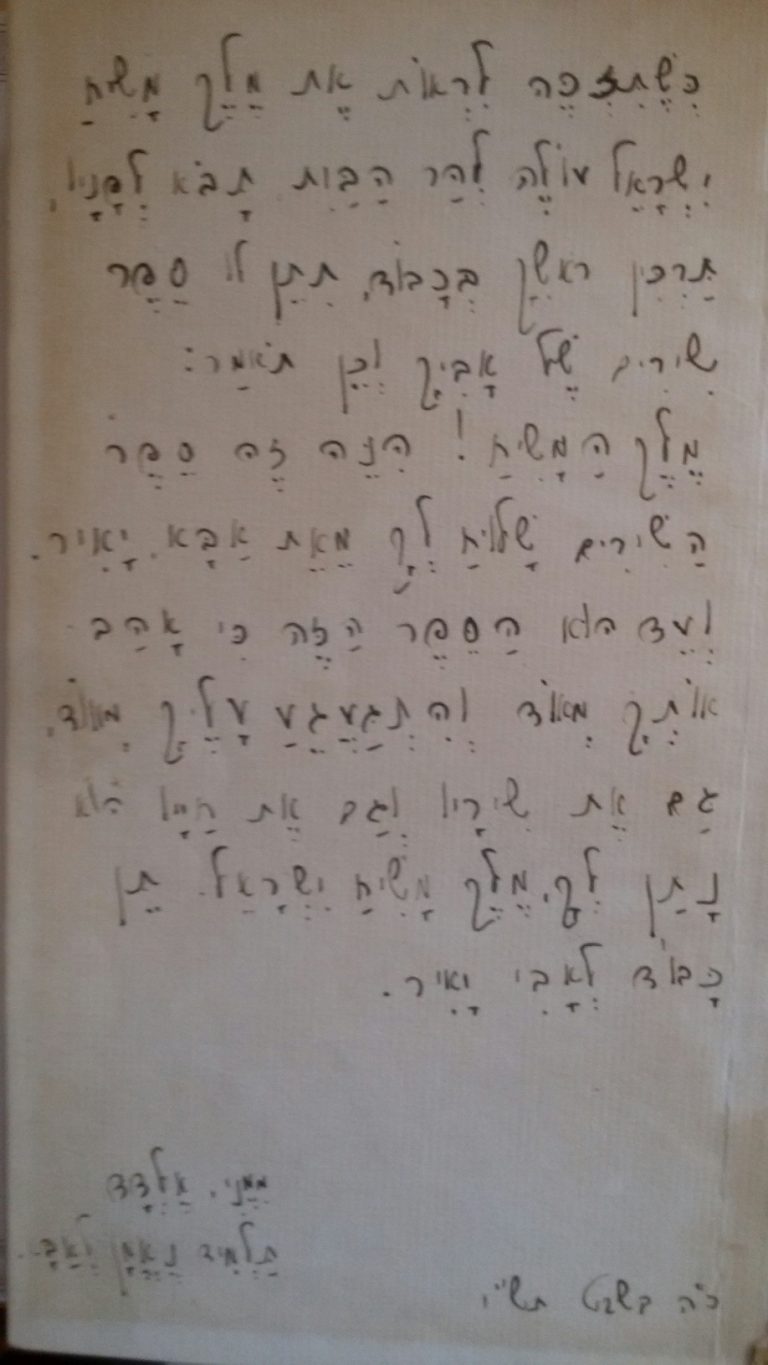 כְּשֶׁתִּזְכֶּה לִרְאוֹת אֶת מֶלֶךְ מָשִׁיחַ
יִשְׂרָאֵל עוֹלֶה לְהַר הַבַּיִת תָּבֹא לְפָנָיו,
תַּרְכִּין רֹאשְׁךָ בְּכָבוֹד, תִּתֵּן לוֹ סֵפֶר
שִׁירִים שֶׁל אָבִיךָ וְכֵן תֹּאמַר:
מֶלֶךְ הַמָּשִׁיחַ! הִנֵּה זֶה סֵפֶר
הַשִּׁירִים שָׁלוּחַ לְךָ מֵאֵת אַבָּא יָאִיר.
הוּא הַסֵּפֶר הַזֶּה כִּי אָהַב
אוֹתְךָ מְאֹד וְהִתְגַּעְגֵּעַ עָלֶיךָ מְאוֹד,
גַּם אֶת שִׁירָיו וְגַם אֶת חַיָּיו הוּא
נָתַן לְךָ, מֶלֶךְ מָשִׁיחַ יִשְׂרָאֵל. תֵּן
כָּבוֹד לְאָבִי יָאִיר.
מִמֶּנִּי, אֶלְדָד
תַּלְמִיד נֶאֱמָן
כ״ה בשבט תש״י